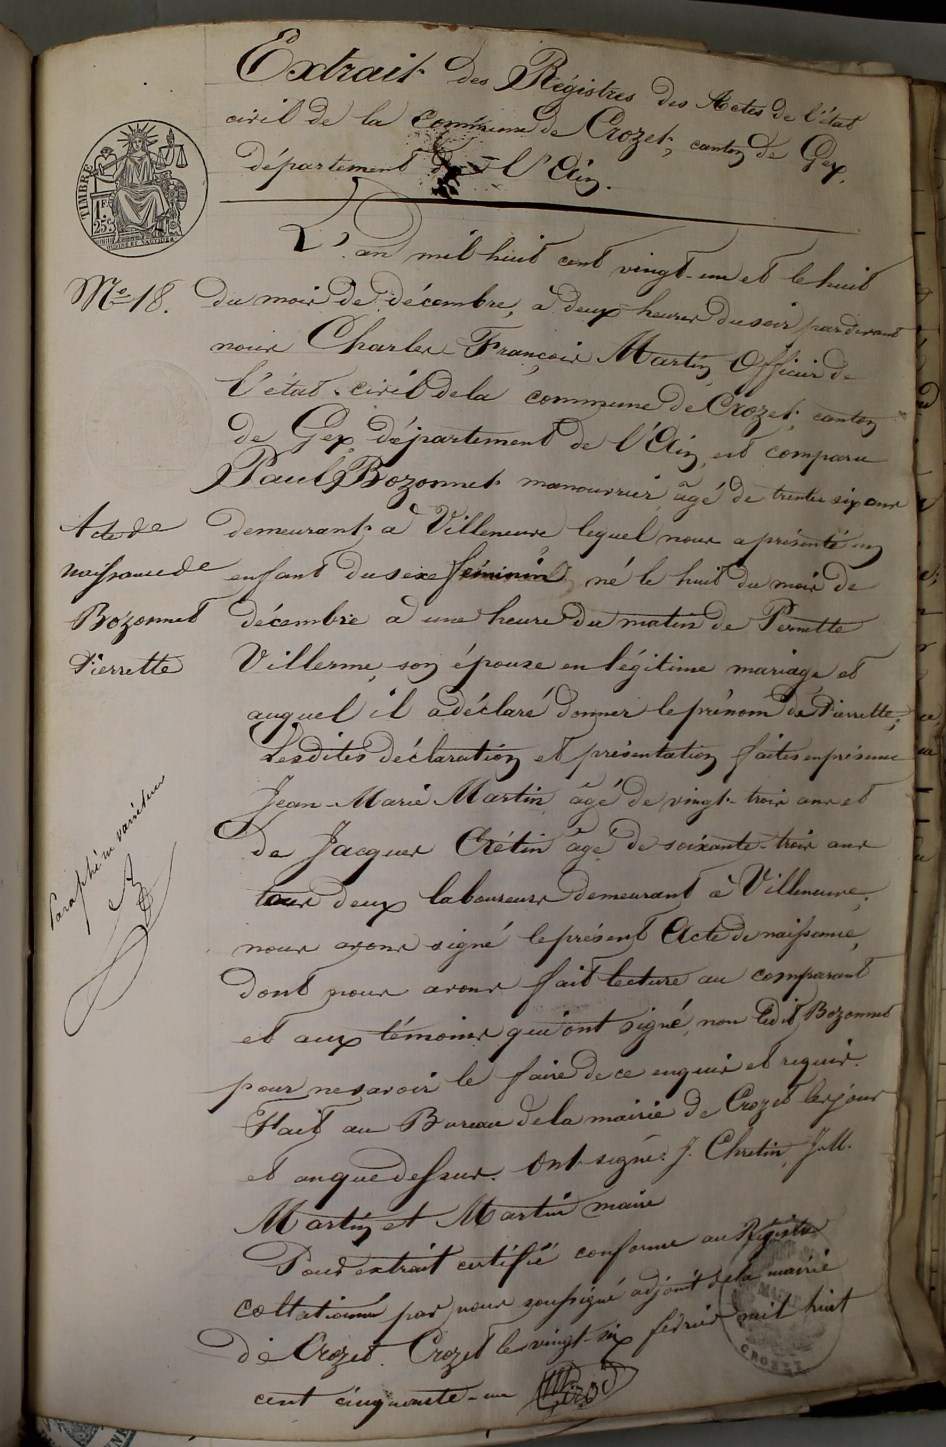 Extrait des Régistres des Actes de l'état
civil de la Commune de Crozet, canton de Gex,
département de l'Ain.
TIMBRE
1 F.
25 c.
L'an mil huit cent vingt-un et le huit
N° 18. du mois de décembre, à deux heures du soir pardevant
nous Charles François Martin Officier de
l'état-civil de la commune de Crozet, canton
de Gex département de l'Ain, est comparu
Paul Bozonnet manouvrier âgé de trente six ans
demeurant à Villeneuve lequel nous a présenté un
enfant du sexe féminin né le huit du mois de
décembre à une heure du matin de Pernette
Villerme, son épouse en légitime mariage et
auquel il a déclaré donner le prénom de Pierrette;
Lesdites déclaration et présentation faites en présence
Jean-Marie Martin âgé de vingt-trois ans et
de Jacques Crétin âgé de soixante-trois ans
tous deux laboureurs demeurant à Villeneuve,
nous avons signé le présent Acte de naissance,
dont nous avons fait lecture au comparant
et aux témoins qui ont signé, non ledit Bozonnet
pour ne savoir le faire de ce enquis et requis.
Fait au Bureau de la mairie de Crozet les jour
et an que dessus. Ont signé: J. Chretin, J. M.
Martin et Martin maire
Pour extrait certifié conforme au Régistre
collationné par nous soussigné adjoint de la mairie
de Crozet. Crozet le vingt-six février mil huit
cent cinquante-un
Acte de
naissance de
Bozonnet
Pierrette
Paraphé ne varietur
MAIRIE
CROZET